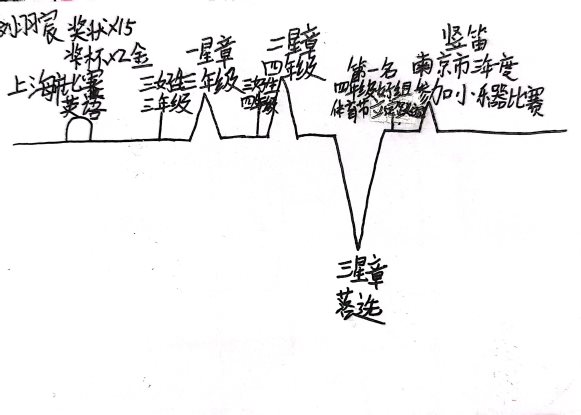 刘羽宸 奖状×15
奖杯×2金
上海比赛
英语
三好生
三年级
一星章
三年级
三好生
四年级
二星章
四年级
三星章
落选
第一名
四年级
体育节
竖笛
南京市三年度
参加小乐器比赛